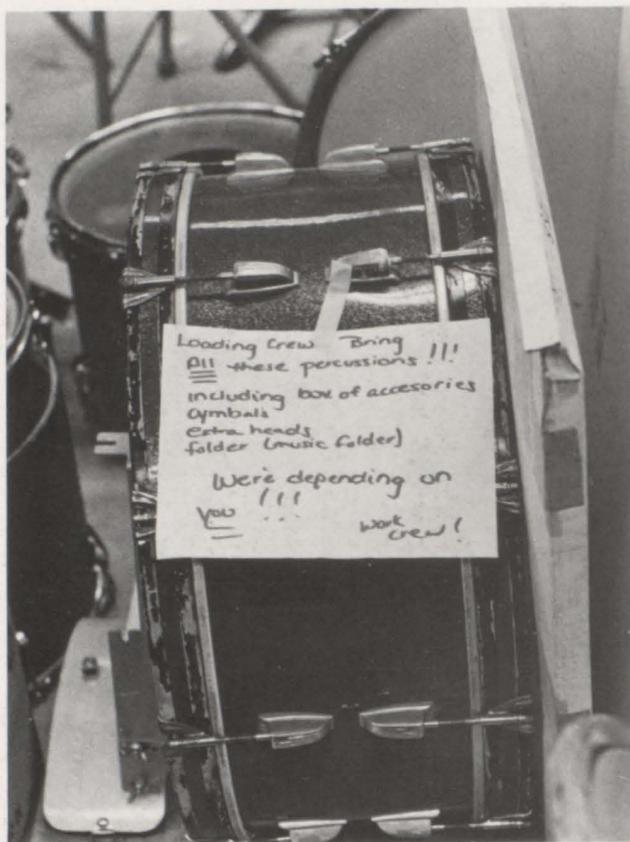 Loading Crew Bring
All these percussions !!!
including box of accesories
Cymbals
extra heads
folder (music folder)
We're depending on
you !!!
work
crew!